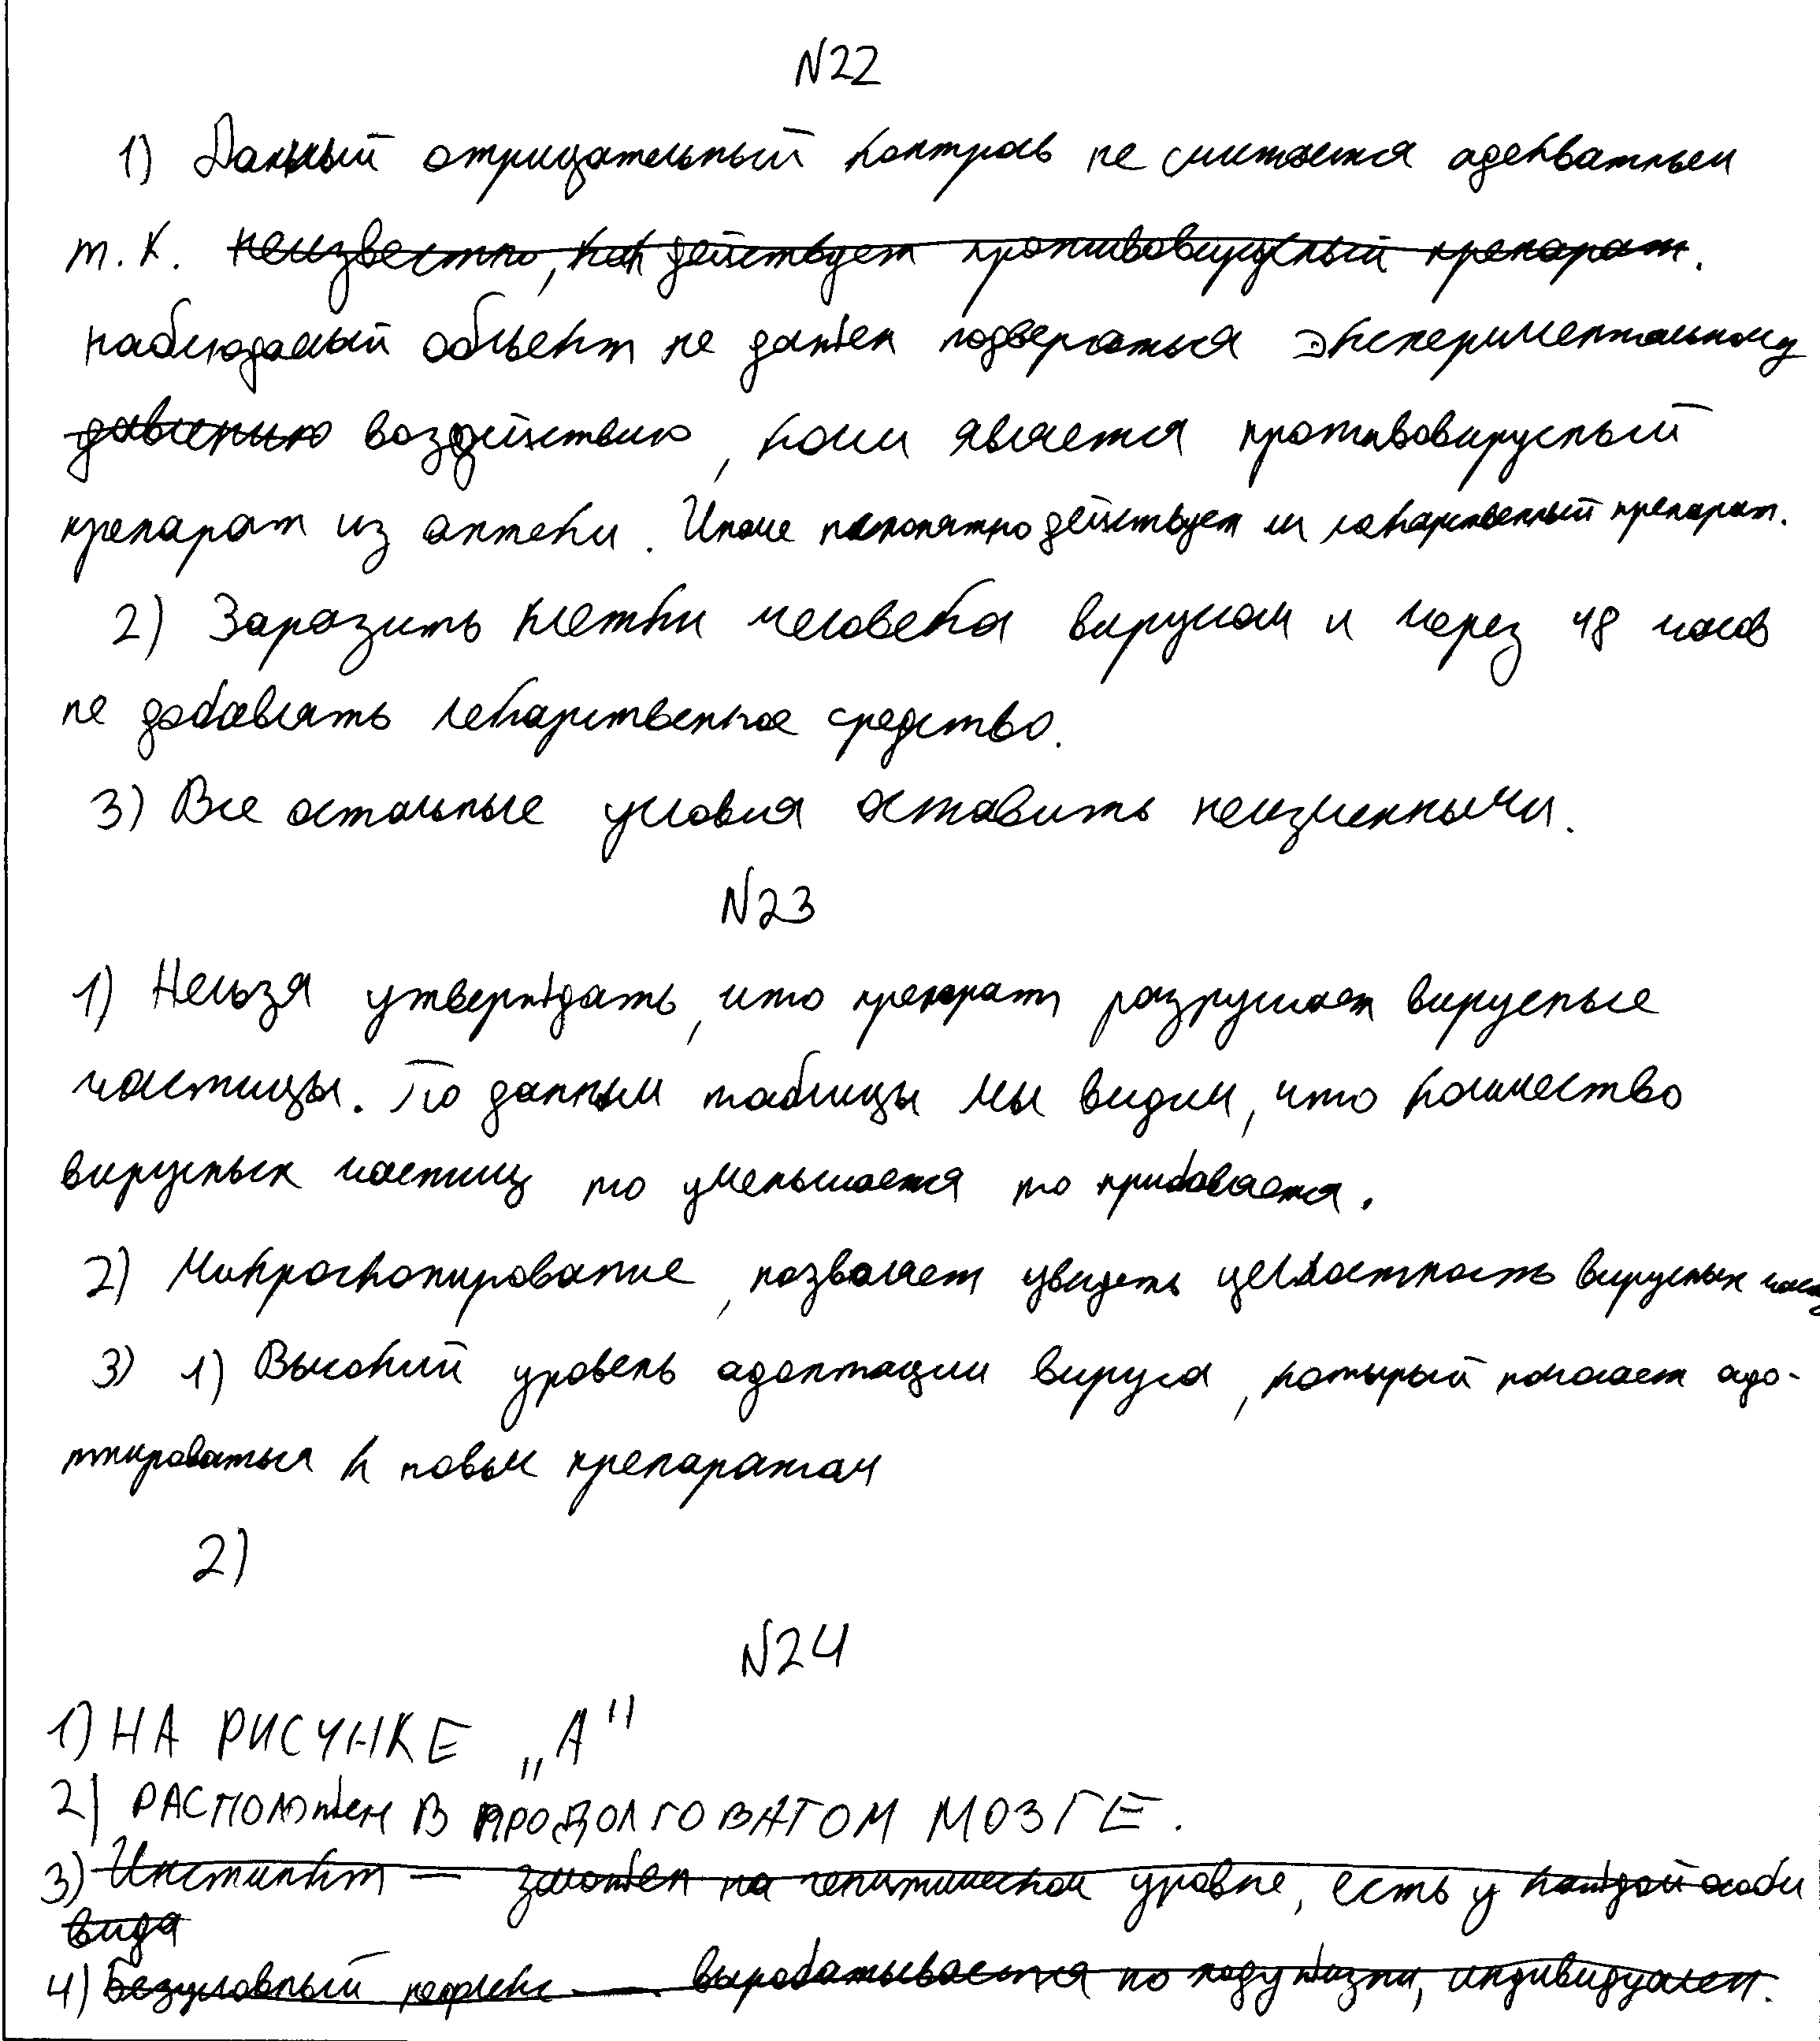 N22
1) Данный отрицательный контроль не считается адекватным
т.к. неизвестно, как действует противовирусный препарат.
наблюдаемый объект не должен подвергаться экспериментальному
давлению воздействию, коим является противовирусный
препарат из аптеки. Иначе непонятно действует ли лекарственный препарат.
2) Заразить клетки человека вирусом и через 48 часов
не добавлять лекарственное средство.
3) Все остальные условия оставить неизменными.
N23
1) Нельзя утверждать, что препарат разрушает вирусные
частицы. По данным таблицы мы видим, что количество
вирусных частиц то уменьшается то прибавляется.
2) Микроскопирование, позволяет увидеть целостность вирусных
3) 1) Высокий уровень адаптации вируса, который помогает адо-
птироваться к новым препаратам
2)
N24
1) НА РИСУНКЕ „А"
2) РАСПОЛОЖЕН В ПРОДОЛГОВАТОМ МОЗГЕ.
3) Инстинкт — заложен на генетическом уровне, есть у каждой особи
вида
4) Безусловный рефлекс — вырабатывается по ходу жизни, индивидуален.